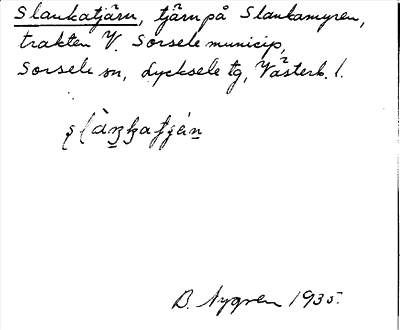 Slankatjärn, tjärn på Slankamyren,
trakten V. Sorsele municip,
Sorsele sn, Lycksele tg, Västerb. l.
B. Nygren 1935.